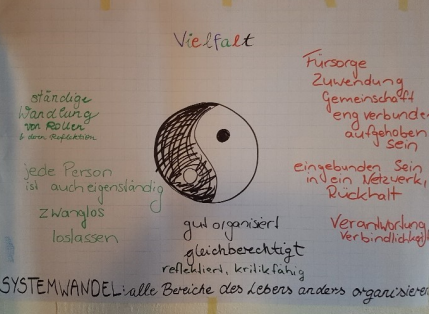 Vielfalt
ständige
Wandlung
von Rollen
& deren Reflektion
jede Person
ist auch eigenständig
zwanglos
loslassen
gut organisiert
gleichberechtigt
reflektiert, kritikfähig
Fürsorge
Zuwendung
Gemeinschaft
eng verbunden
aufgehoben
sein
eingebunden sein
in ein Netzwerk,
Rückhalt
Verantwortung
Verbindlichkeit
SYSTEMWANDEL: alle Bereiche des Lebens anders organisieren